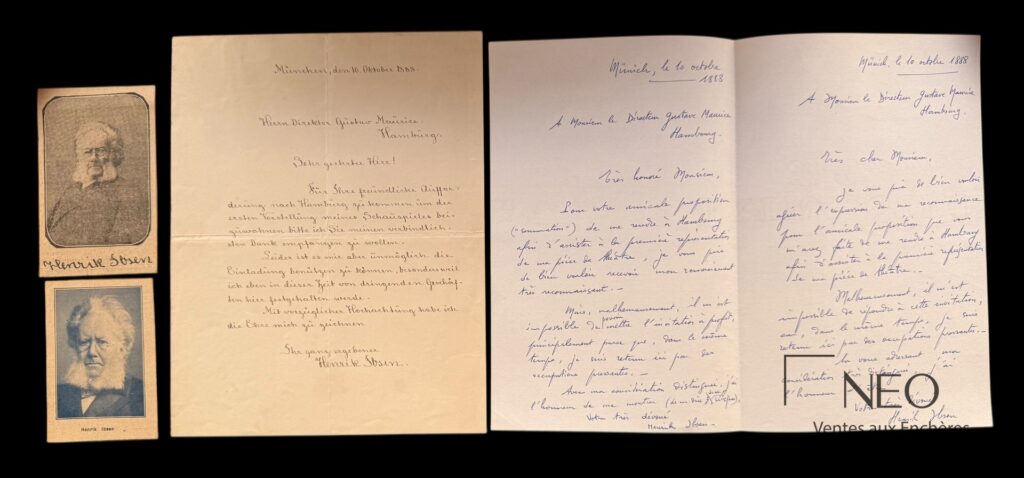 Henrik Ibsen
Henrik Ibsen
München, den 10. Oktober 1888.
Herrn Direktor Gustav Maurice.
Hamburg.
Sehr geehrter Herr!
Für Ihre freundliche Auffor-
derung nach Hamburg zu kommen um der
ersten Vorstellung meines Schauspieles bei-
zuwohnen bitte ich Sie meinen verbindlich-
sten Dank empfangen zu wollen.
Leider ist es mir aber unmöglich die
Einladung benützen zu können, besonders weil
ich eben in dieser Zeit von dringenden Geschäf-
ten hier festgehalten werde.
Mit vorzüglicher Hochachtung habe ich
die Ehre mich zu zeichnen
Ihr ganz ergebener
Henrik Ibsen.
Münich, le 10 octobre
1888
A Monsieur le Directeur Gustave Maurice
Hambourg.
Très honoré Monsieur,
Pour votre amicale proposition
de me rendre à Hambourg
afin d'assister à la première représentation
de ma pièce de théâtre, je vous prie
de bien vouloir recevoir mon remerciement
très reconnaissant. -
Mais, malheureusement, il m'est
impossible de pouvoir mettre l'invitation à profit,
principalement parce que, dans le même
temps, je suis retenu ici par des
occupations pressantes. -
Avec ma considération distinguée, j'ai
l'honneur de me
Votre très dévoué
Henrik Ibsen.
Münich, le 10 octobre 1888
A Monsieur le Directeur Gustave Maurice
Hambourg.
Très cher Monsieur,
Je vous prie de bien vouloir
agréer l'expression de ma reconnaissance
pour l'amicale proposition que vous
m'avez faite de me rendre à Hambourg
afin d'assister à la première représentation
de ma pièce de théâtre.
Malheureusement, il m'est
impossible de répondre à cette invitation,
car, dans le même temps, je suis
retenu ici par des occupations pressantes. -
En vous adressant mon
considération très distinguée, j'ai
l'honneur
Votre très dévoué
Henrik Ibsen
NEO
Ventes aux Enchères